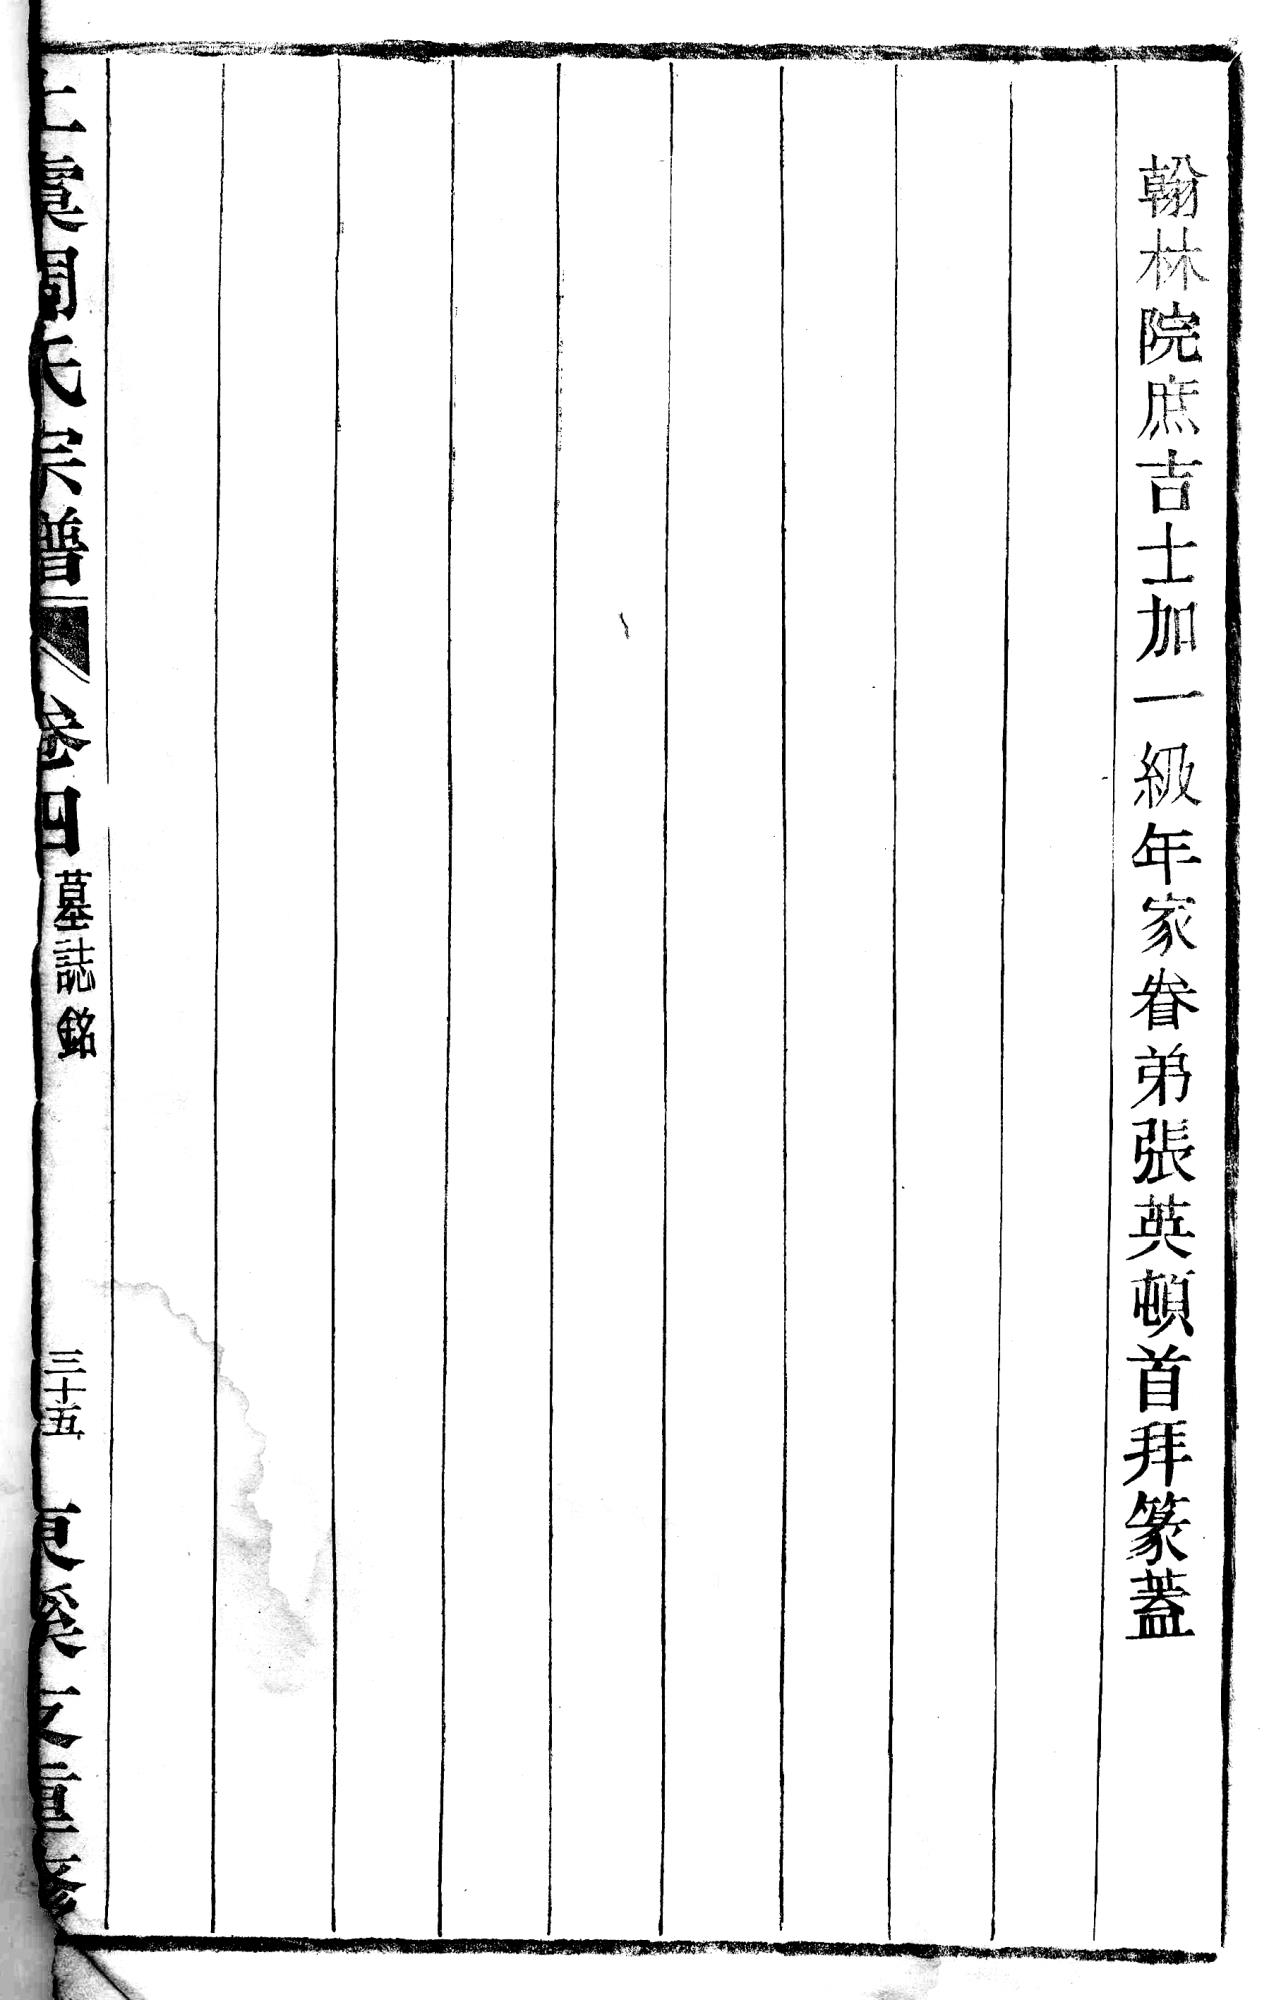 翰林院庶吉士加一級年家眷弟張英頓首拜篆蓋
上虞周氏宗譜 卷四 墓誌銘 三十五 東溪支重修